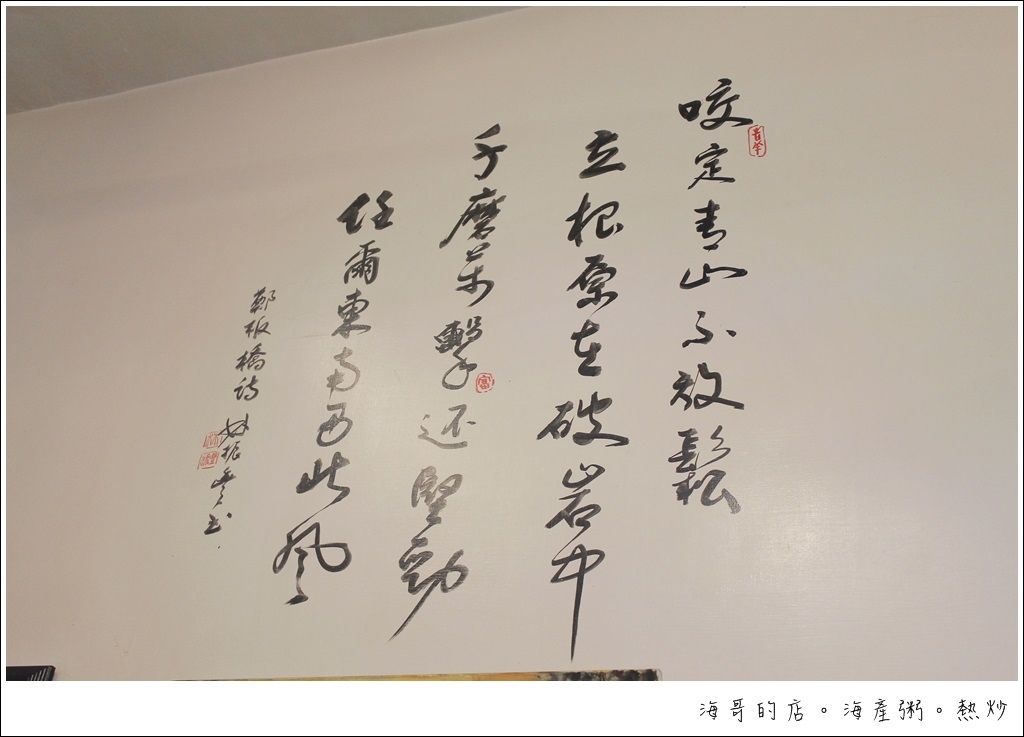 咬定青山不放鬆
立根原在破岩中
千磨萬擊还堅勁
任爾東南西北風
鄭板橋詩
海哥的店。海產粥。熱炒